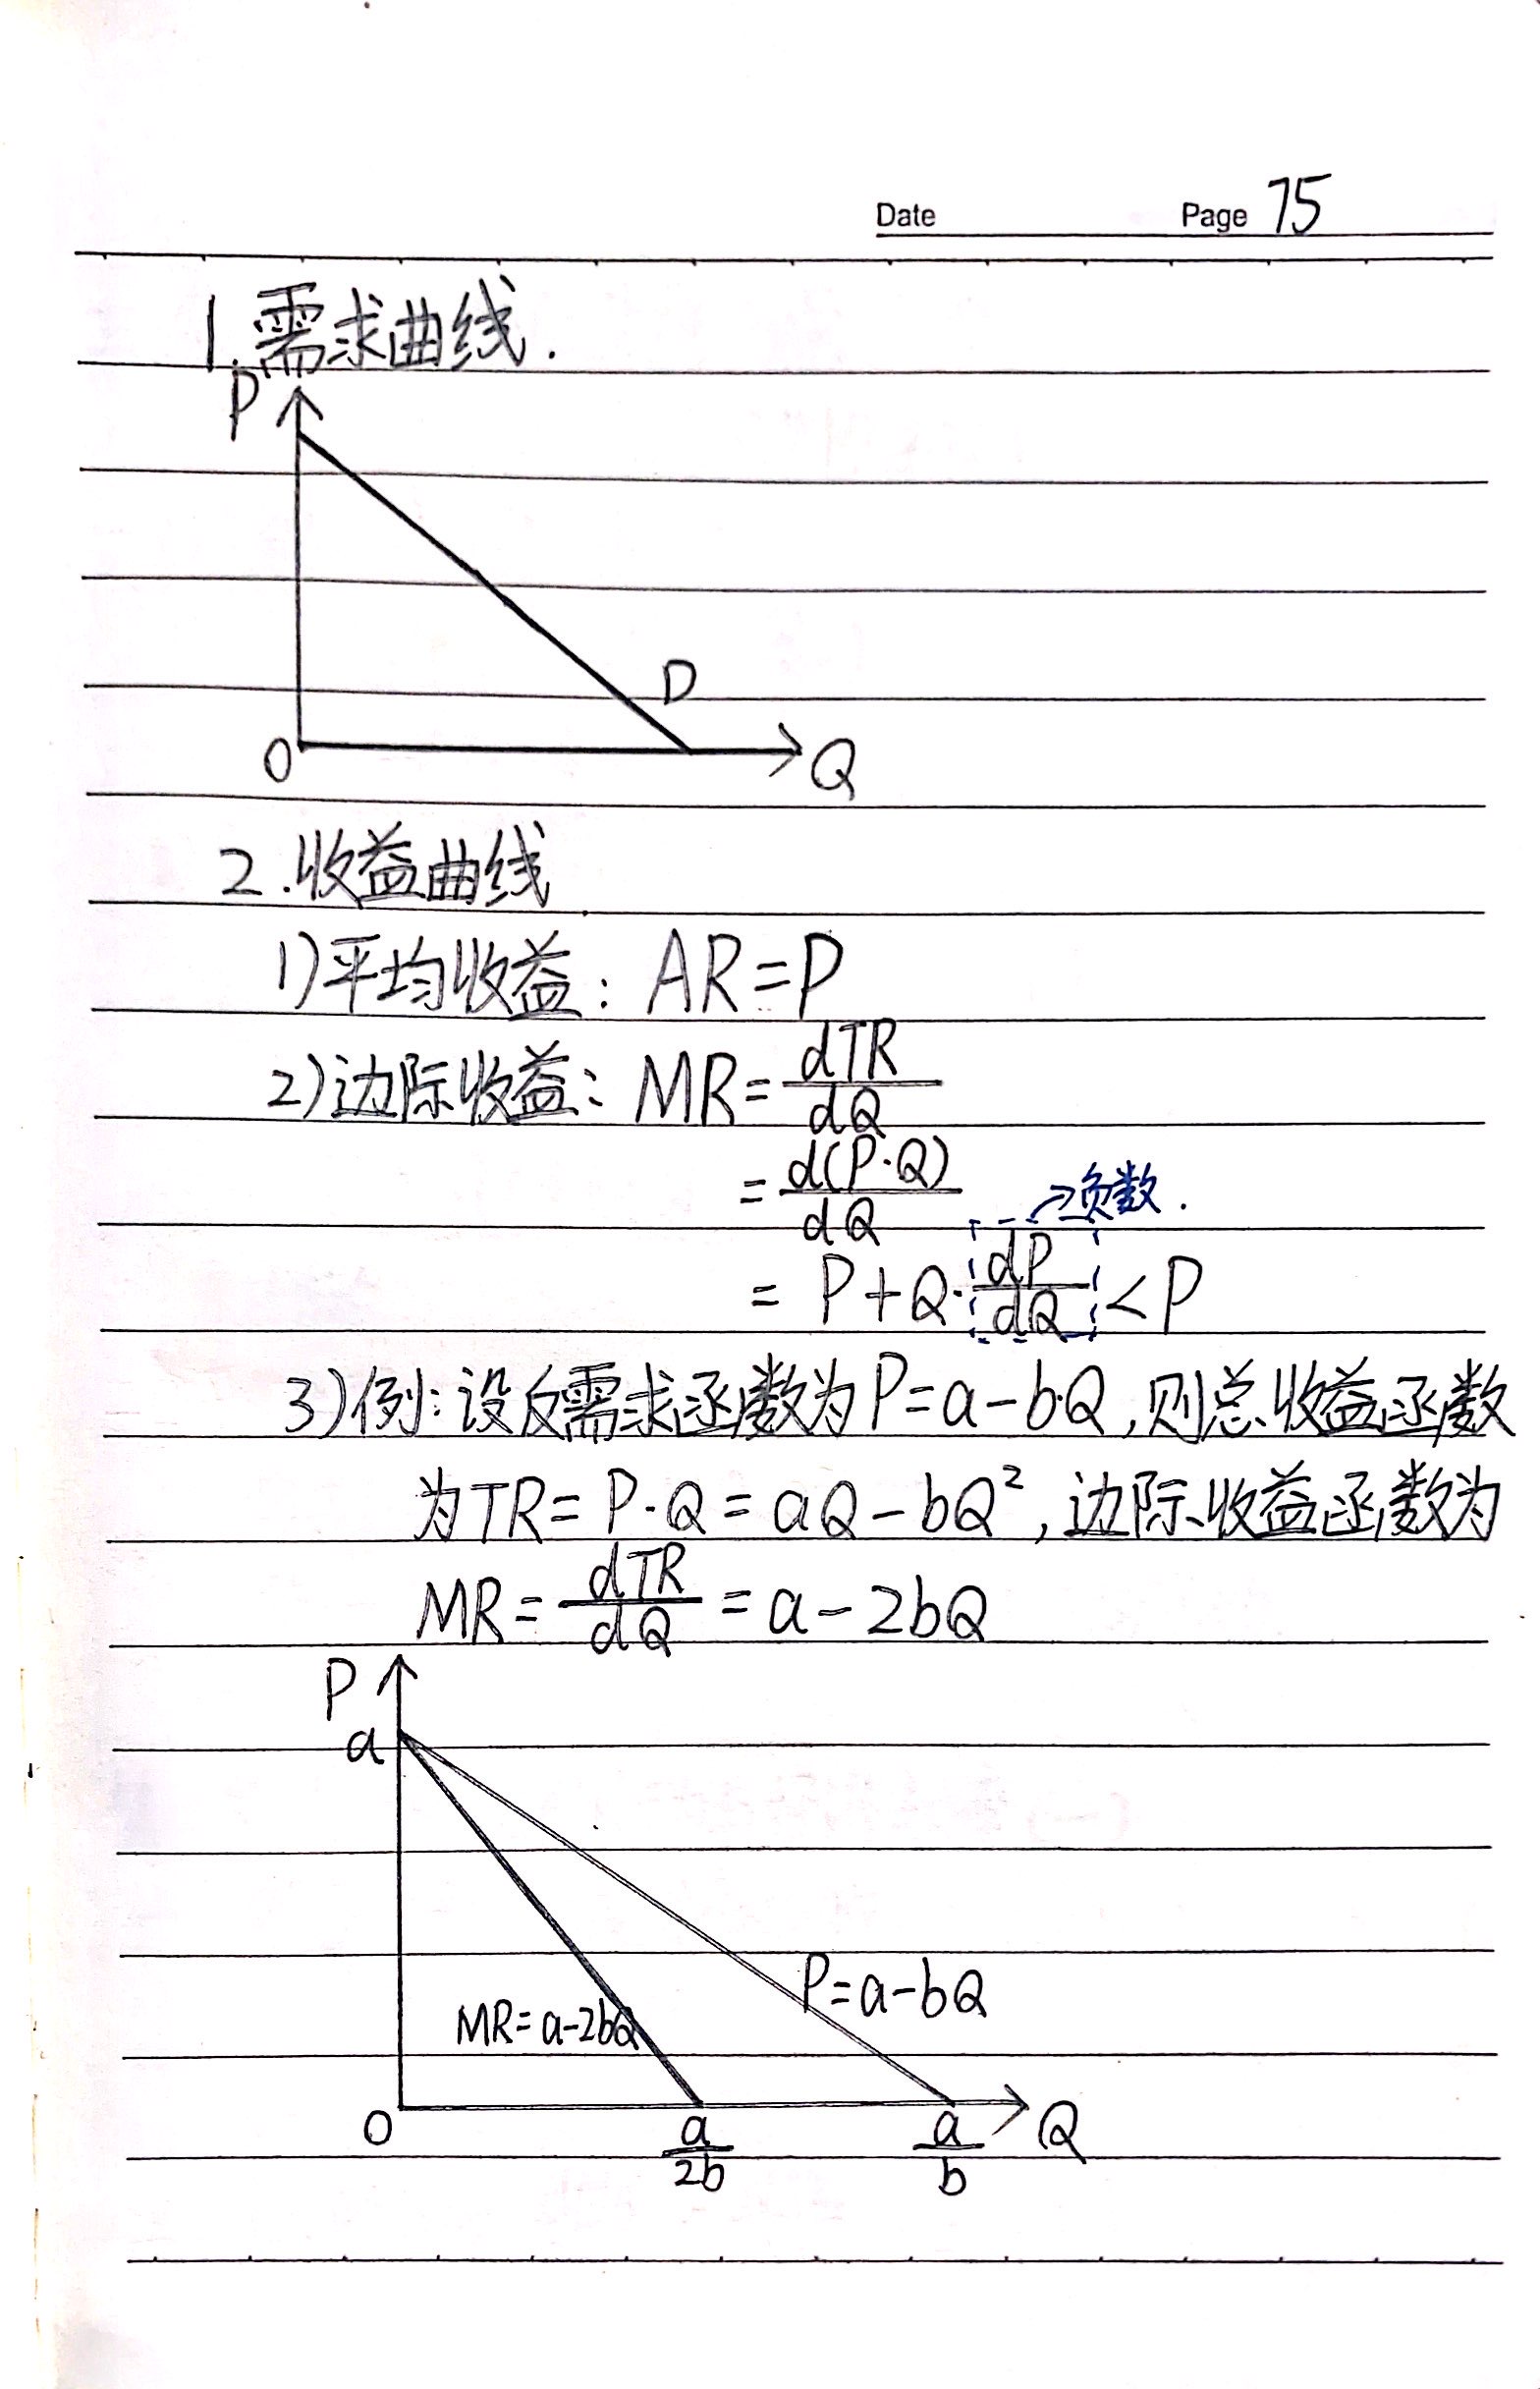 Date Page 75
1.需求曲线.
P
D
O Q
2.收益曲线
1)平均收益: AR=P
2)边际收益: MR=dTR/dQ
=d(P·Q)/dQ →负数.
= P+Q·dP/dQ<P
3)例:设反需求函数为P=a-b·Q,则总收益函数
为TR=P·Q=aQ-bQ²,边际收益函数为
MR=dTR/dQ=a-2bQ
P
a
P=a-bQ
MR=a-2bQ
O a/2b a/b Q